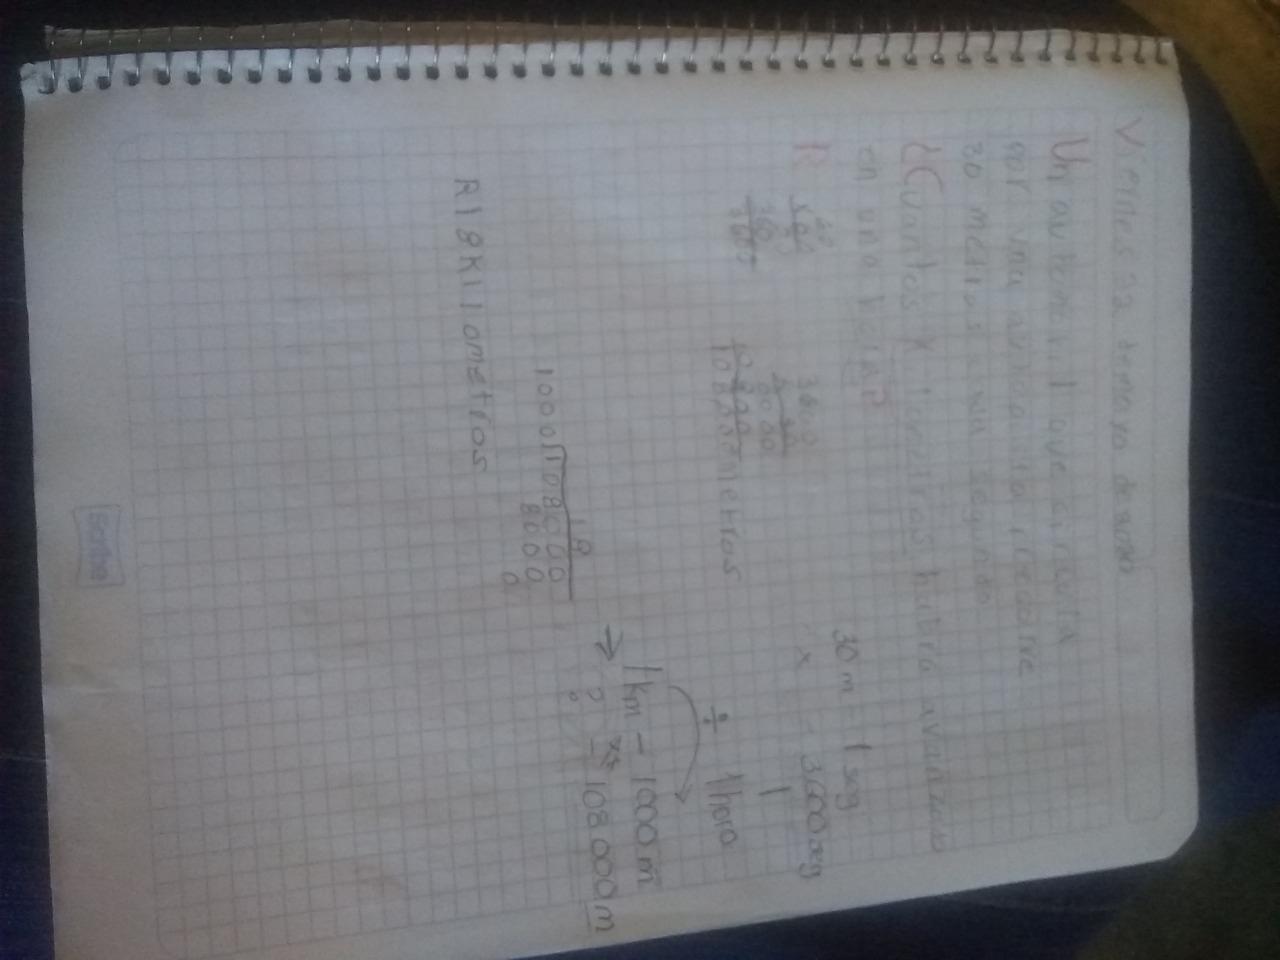 Viernes 22 de mayo de 2020
Un automovil que circula
por una autopista recorre
30 metros en un segundo
¿Cuantos Kilometros habra avanzado
en una hora?
R
60
x60
3600
3600
x 30
0000
10800
108000 metros
30 m - 1 seg
x - 3600 seg
1
1 hora
÷
1 km - 1000 m
? - 108 000 m
18
1000 108000
8000
0
R 18 Kilometros
Scribe